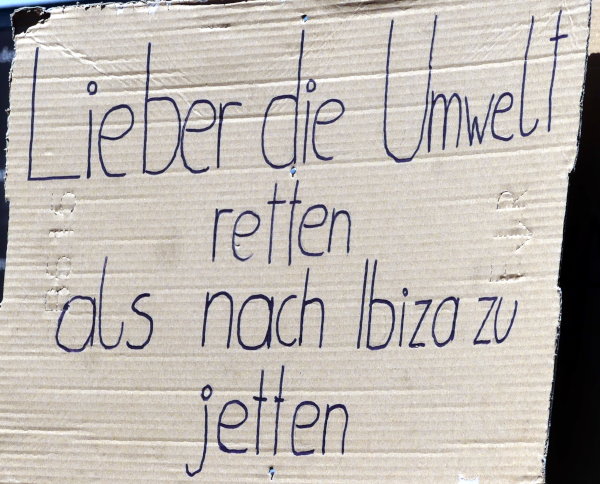 Lieber die Umwelt
retten
als nach Ibiza zu
jetten